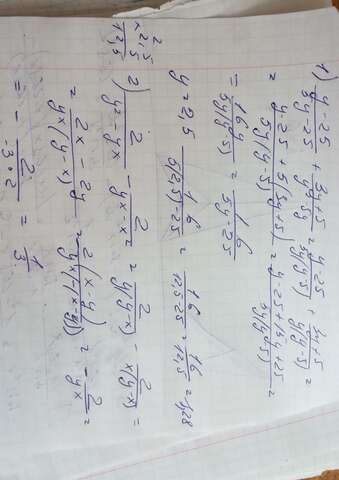 1) y-25/5y-25 + 3y+5/y²-5y = y-25/5(y-5) + 3y+5/y(y-5) =
= y-25+5(3y+5)/5y(y-5) = y-25+15y+25/5y(y-5) =
= 16y/5y(y-5) = 16/5y-25
y=2,5 16/5(2,5)-25 = 16/12,5-25 = 16/12,5 = 1,28
2,5
× 5
12,5
2) 2/y²-yx - 2/yx-x² = 2/y(y-x) - 2/x(y-x) =
= 2x-2y/yx(y-x) = 2(x-y)/yx(-(x-y)) = -2/yx =
= -2/-3·2 = 1/3